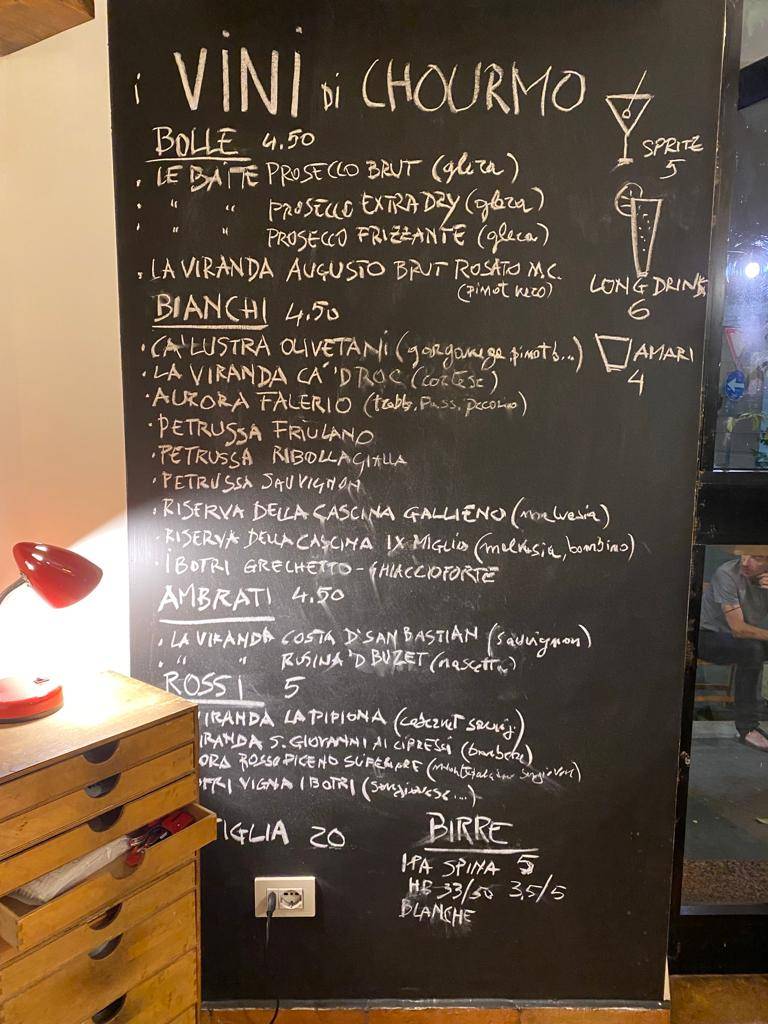 i VINI DI CHOURMO
BOLLE 4.50
. LE BAITE PROSECCO BRUT (glera)
. " " PROSECCO EXTRA DRY (glera)
. " " PROSECCO FRIZZANTE (glera)
. LA VIRANDA AUGUSTO BRUT ROSATO M.C.
(pinot nero)
BIANCHI 4.50
· CA' LUSTRA OLIVETANI (garganega, pinot b...)
· LA VIRANDA CA' D ROC (cortese)
· AURORA FALERIO (trebb, Pass, pecorino)
· PETRUSSA FRIULANO
· PETRUSSA RIBOLLA GIALLA
· PETRUSSA SAUVIGNON
· RISERVA DELLA CASCINA GALLIENO (malvasia)
· RISERVA DELLA CASCINA IX MIGLIO (malvasia, bombino)
· I BOTRI GRECHETTO - GHIACCIOFORTE
AMBRATI 4.50
. LA VIRANDA COSTA D'SAN BASTIAN (sauvignon)
. " " RUSINA 'D BUZET (nascetta)
ROSSI 5
VIRANDA LA PIPIONA (cabernet sauvig)
IRANDA S. GIOVANNI AI CIPRESSI (barbera)
ORA ROSSO PICENO SUPERIORE
VIGNA I BOTRI (sangiovese...)
TIGLIA 20
SPRITZ
5
LONG DRINK
6
AMARI
4
BIRRE
IPA SPINA 5
HB 33/50 3,5/5
BLANCHE